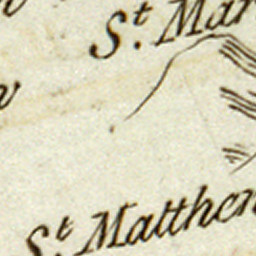 St. Mar
St. Matthew